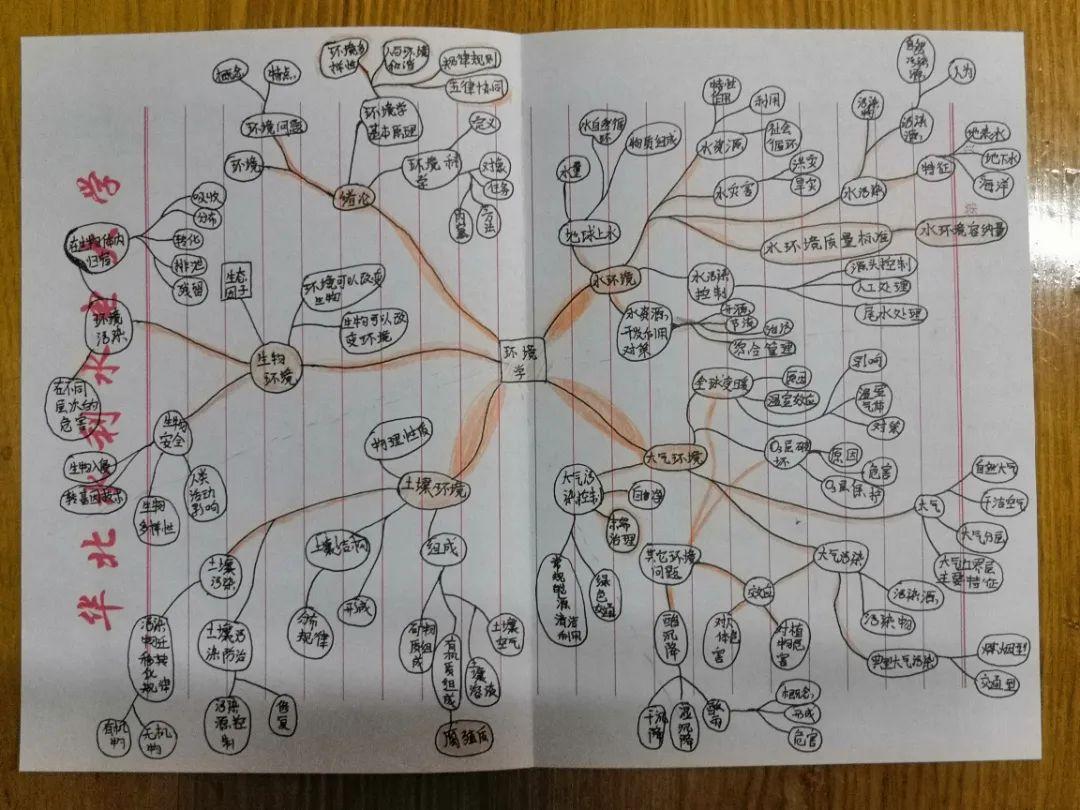 华北水利水电大学
环境学
绪论
环境
环境问题
概念
特点
环境学
基本原理
环境多
样性
人与环境
和谐
规律规则
五律协同
环境科
学
定义
对象
任务
内容
方法
生物
环境
生态
因子
环境可以改变
生物
生物可以改
变环境
环境
污染
在生物体内
归宿
吸收
分布
转化
排泄
残留
在不同
层次的
危害
生物
安全
生物入侵
转基因技术
生物
多样性
人类
活动
影响
土壤环境
物理性质
土壤结构
分布
规律
形成
组成
矿物
质组
成
有机
质组
成
腐殖质
土壤
溶液
土壤
空气
土壤
污染
污染
物迁
移转
化规
律
有机
物
无机
物
土壤污
染防治
污染
源控
制
修
复
水环境
地球上水
水量
水自然循
环
物质组成
水资源
特性
作用
利用
社会
循环
水灾害
洪灾
旱灾
水污染
污染
物
污染
源
自然
污染
源
人为
特征
地表水
地下水
海洋
水环境质量标准
水环境容纳量
水污染
控制
源头控制
人工处理
尾水处理
水资源
开发利用
对策
开源
节流
治污
综合管理
大气环境
全球变暖
原因
温室效应
影响
温室
气体
对策
O₃层破
坏
原因
危害
O₃层保护
大气
自然大气
干洁空气
大气分层
大气边界层
主要特征
大气污染
污染源
污染物
典型大气污染
煤烟型
交通型
效应
对人
体危
害
对植
物危
害
其它环境
问题
酸沉
降
干沉
降
湿沉
降
酸
雨
概念
形成
危害
大气污
染控制
自净
末端
治理
绿色
交通
常规
能源
清洁
利用